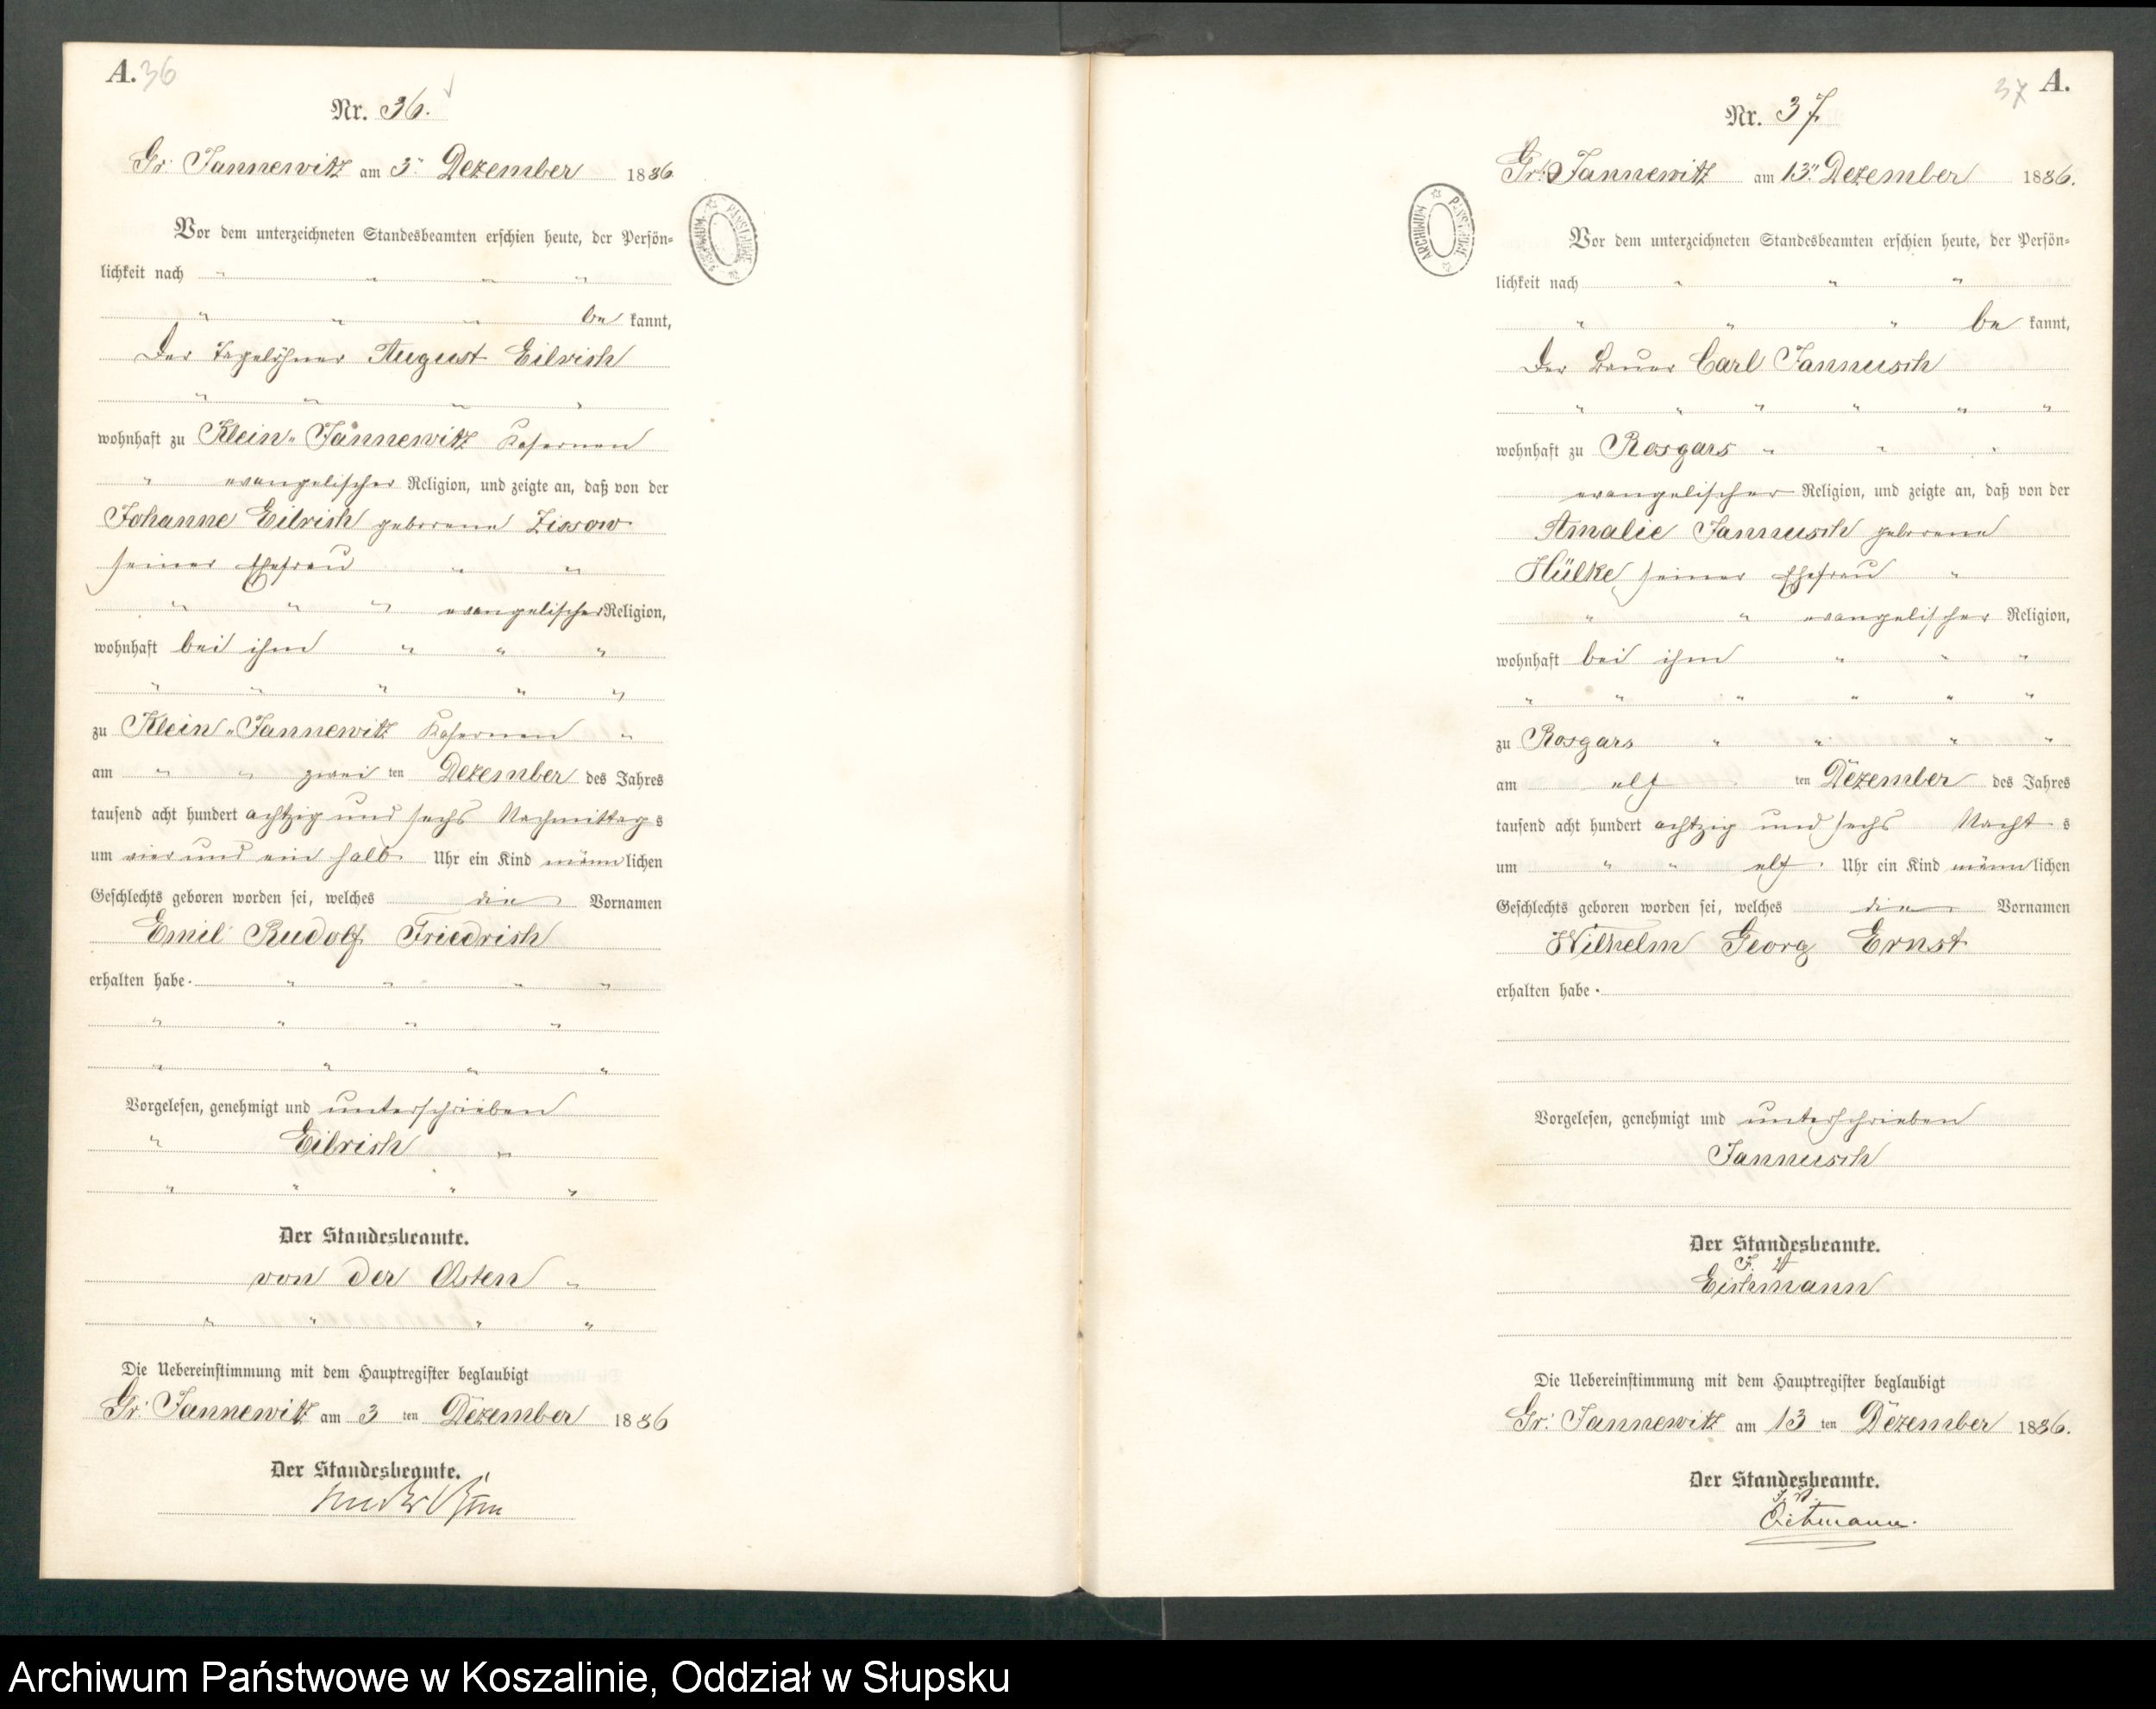 A. 36
Nr. 36.
Gr: Jannewitz am 3ten Dezember 1886
Vor dem unterzeichneten Standesbeamten erschien heute, der Persön-
lichkeit nach " " " "
" " " be kannt,
Der Tagelöhner August Eilrich
" " " "
wohnhaft zu Klein-Jannewitz Kasernen
" evangelischer Religion, und zeigte an, daß von der
Johanne Eilrich geborene Zissow
seiner Ehefrau " "
" " " evangelischer Religion,
wohnhaft bei ihm " " "
" " " " "
zu Klein-Jannewitz Kasernen "
am " " zwei ten Dezember des Jahres
tausend acht hundert achtzig und sechs Nachmittags
um vier und ein halb Uhr ein Kind männlichen
Geschlechts geboren worden sei, welches die Vornamen
Emil Rudolf Friedrich
erhalten habe. " " " "
" " " "
" " " "
Vorgelesen, genehmigt und unterschrieben
" Eilrich "
" " " "
Der Standesbeamte.
von der Osten "
" " " "
Die Uebereinstimmung mit dem Hauptregister beglaubigt
Gr: Jannewitz am 3 ten Dezember 1886
Der Standesbeamte.
37 A.
Nr. 37
Gr: Jannewitz am 13ten Dezember 1886.
Vor dem unterzeichneten Standesbeamten erschien heute, der Persön-
lichkeit nach " " "
" " " be kannt,
Der Bauer Carl Jannusch
" " " " " "
wohnhaft zu Rosgars " " "
evangelischer Religion, und zeigte an, daß von der
Amalie Jannusch geborene
Hülke seiner Ehefrau "
" " evangelischer Religion,
wohnhaft bei ihm " " "
" " " " " "
zu Rosgars " " " "
am elf ten Dezember des Jahres
tausend acht hundert achtzig und sechs Nachts
um " " elf Uhr ein Kind männlichen
Geschlechts geboren worden sei, welches die Vornamen
Wilhelm Georg Ernst
erhalten habe.
Vorgelesen, genehmigt und unterschrieben
Jannusch
Der Standesbeamte.
J. V.
Eichmann
Die Uebereinstimmung mit dem Hauptregister beglaubigt
Gr: Jannewitz am 13 ten Dezember 1886.
Der Standesbeamte.
J. V.
Eichmann.
Archiwum Państwowe w Koszalinie, Oddział w Słupsku